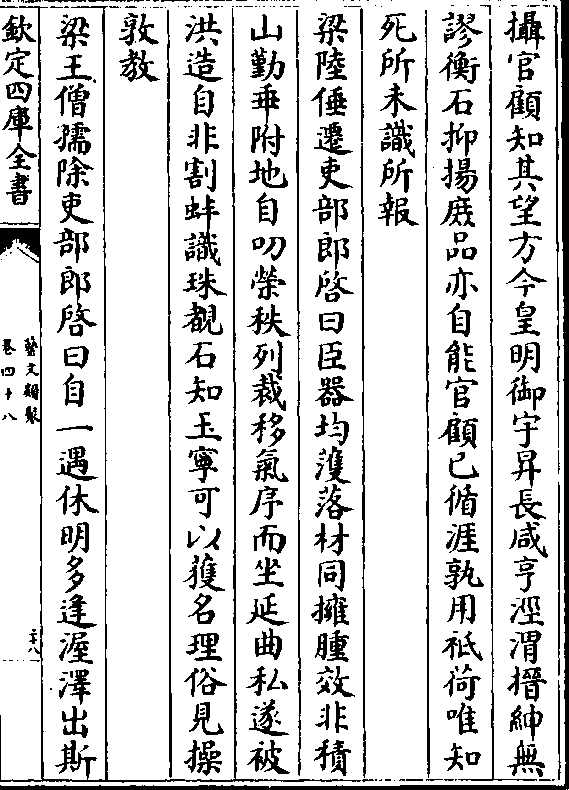 攝官顧知其望方今皇明御宇昇長咸亨涇渭搢紳無
謬衡石抑揚庶品亦自能官顧已循涯孰用祗荷唯知
死所未識所報
梁陸倕遷吏部郎啓曰臣器均濩落材同擁腫效非積
山勤乖附地自叨榮秩列裁移氣序而坐延曲私遂被
洪造自非割蚌識珠覩石知玉寧可以獲名理俗見操
敦教
梁王僧孺除吏部郎啓曰自一遇休明多逢渥澤出斯
欽定四庫全書
藝文類聚
卷四十八